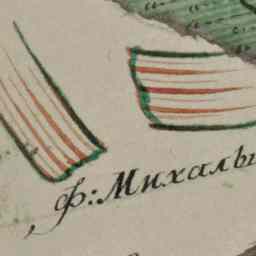 ф: Михалы